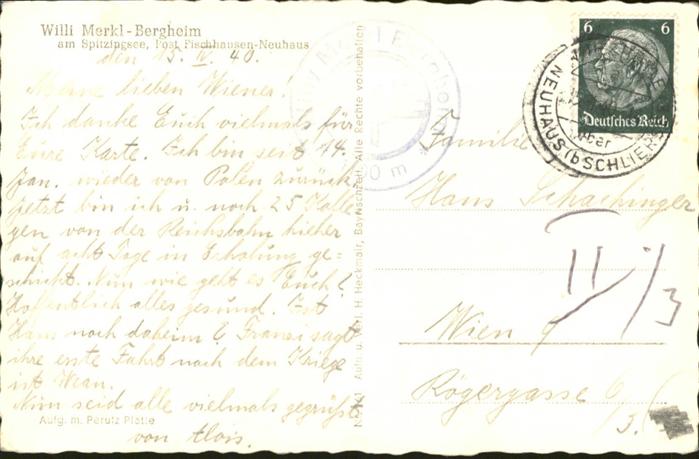 Willi Merkl-Bergheim
am Spitzingsee, Post Fischhausen-Neuhaus
den 15. IV. 40.
Meine lieben Wiener!
Ich danke Euch vielmals für
Eure Karte. Ich bin seit 14.
Jan. wieder von Polen zurück
jetzt bin ich u. noch 25 Kolle
gen von der Reichsbahn hieher
auf acht Tage in Erholung ge-
schickt. Nun wie geht es Euch?
Hoffentlich alles gesund. Ist
Hans noch daheim? Franzi sagt
ihre erste Fahrt nach dem Kriege
ist Wean.
Nun seid alle vielmals gegrüßt
von Alois.
Aufg. m. Perutz Platte
Aufn. u. Verl. H. Heckmair, Bayrischzell. Alle Rechte vorbehalten
6 6
Deutsches Reich
über
NEUHAUS (b SCHLIERSEE
00 m
Familie
Hans Schachinger
II/3
Wien 9
Rögergasse 6